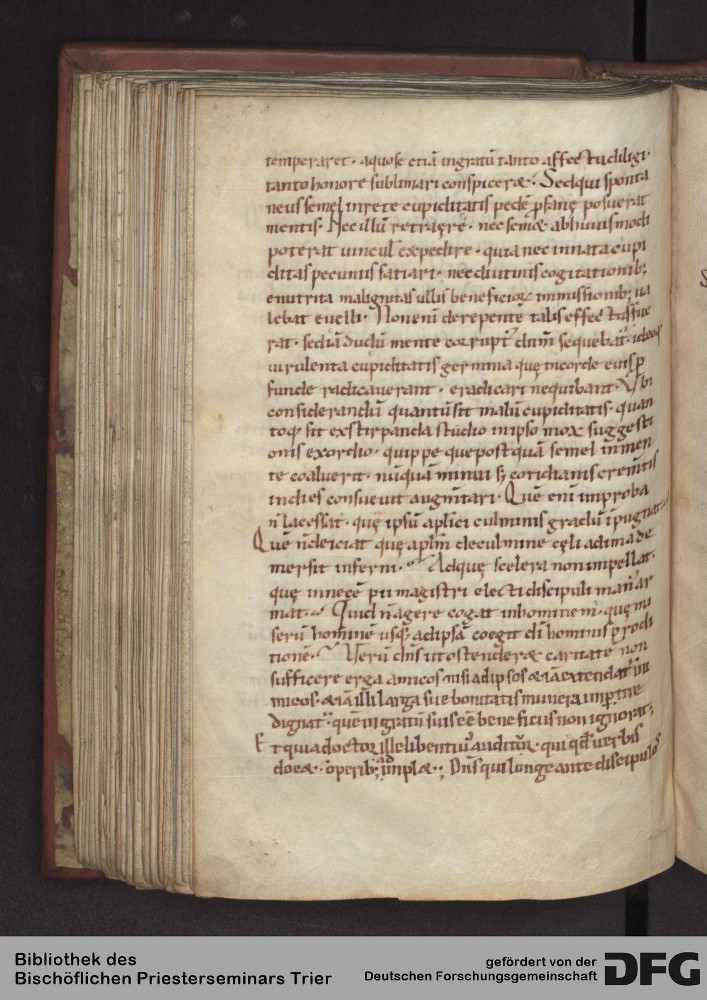 temperaret · a quo se etiā ingratū tanto affectu diligi ·
tanto honore sublimari conspiceret : Sed qui sponta
neus semel in rete cupiditatis pedē posuerat
mentis · Nec illū retrahere · nec semet ab huiusmodi
poterat uincul expedire · quia nec innata cupi
ditas pecuniis satiari · nec diutinis cogitationib;
enutrita malignitas ullis beneficioꝝ immissionib; ua
lebat euelli · Non enī derepente talis effectus fue
rat · sed iā diu dūi mente corrupt dnm̄ sequebat
uirulenta cupiditatis germina quę in corde eius ꝓ
funde radicauerant · eradicari nequibant · Vbi
considerandū quantū sit malū cupiditatis · quan
toq; sit exstirpanda studio in ipso mox suggesti
onis exordio · quippe que postquā semel in men
te coaluerit · nūquā minui sꝫ cotidianis crem̄tis
in dies consueuit augm̄tari · Quē enī improba
n̄ lacessat · quę ipsū apl̄ici culminis gradū īpugnat
Quē n̄ deiciat quę apl̄m de culmine cęli adima de
mersit inferni · Ad quę scelera non impellat ·
quę in necē pii magistri electi discipuli man ar
mat · Quid n̄ agere cogat in hominem · quę mi
serū hominē usq; ad ipsā coegit dī hominis prodi
tionē · Verū dn̄s ut ostenderet caritatē non
sufficere erga amicos nisi ad ipsos &iā extendat ini
micos · &iā illi larga suę bonitatis munera impertire
dignat · quē ingratū suis eē beneficiis non ignorat ·
Et quia doctor ille libentius auditur · qui qd̄ uerbis
docet · operib; implet ·; Dn̄s qui longe ante discipulos
Bibliothek des
Bischöflichen Priesterseminars Trier
gefördert von der
Deutschen Forschungsgemeinschaft
DFG